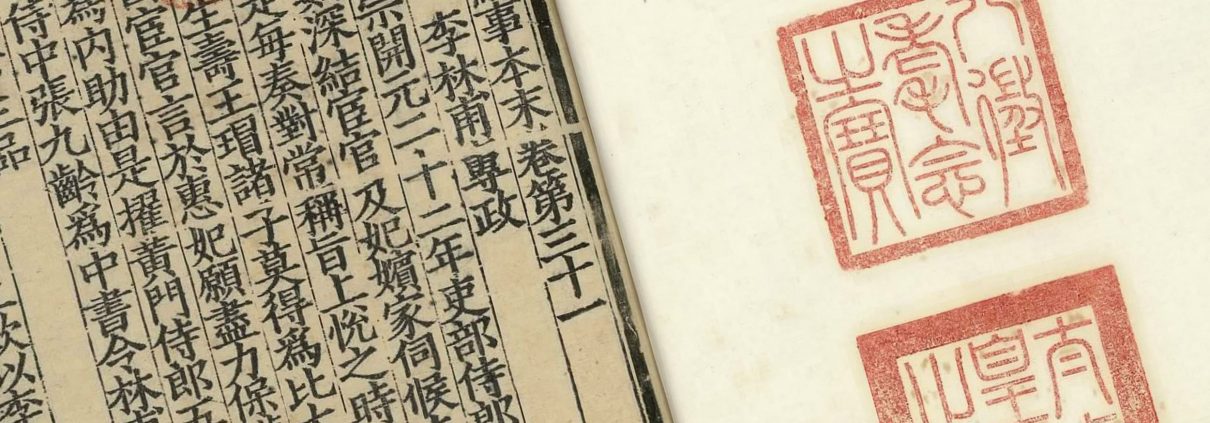 事本末卷第三十一
李林甫專政
宗開元二十二年吏部侍郎
深結宦官及妃嬪家伺候
是每奏對常稱旨上悅之時
生壽王瑁諸子莫得爲比
宦官言於惠妃願盡力保
爲內助由是擢黃門侍郎
侍中張九齡爲中書令林
三品
以李
八徵
耄念
之寶
太
皇
之